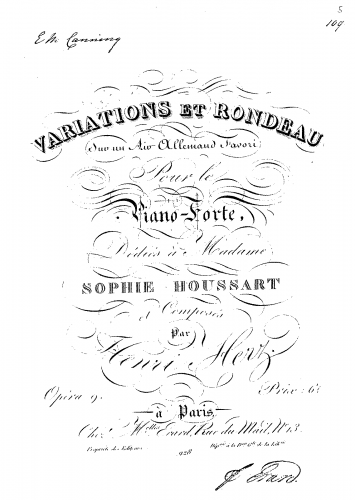 5
109
E M Canning
VARIATIONS ET RONDEAU
Sur un Air Allemand Favori
Pour le
Piano-Forte,
Dédiés à Madame
SOPHIE HOUSSART
& Composés
Par
Henri Herz.
Opéra 9.
Prix: 6f
à Paris
Chez Mlles Erard, Rue du Mail, N° 13.
Propriété des Editeurs.
928
Erard.